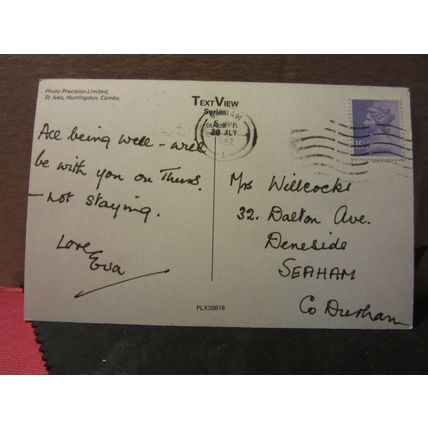 Photo Precision Limited,
St. Ives, Huntingdon, Cambs.
TEXTVIEW
Series
All being well - will
be with you on Thurs.
- not staying.
Love
Eva
Mrs Willcocks
32. Dalton Ave.
Deneside
SEAHAM
Co Durham
PLX20618